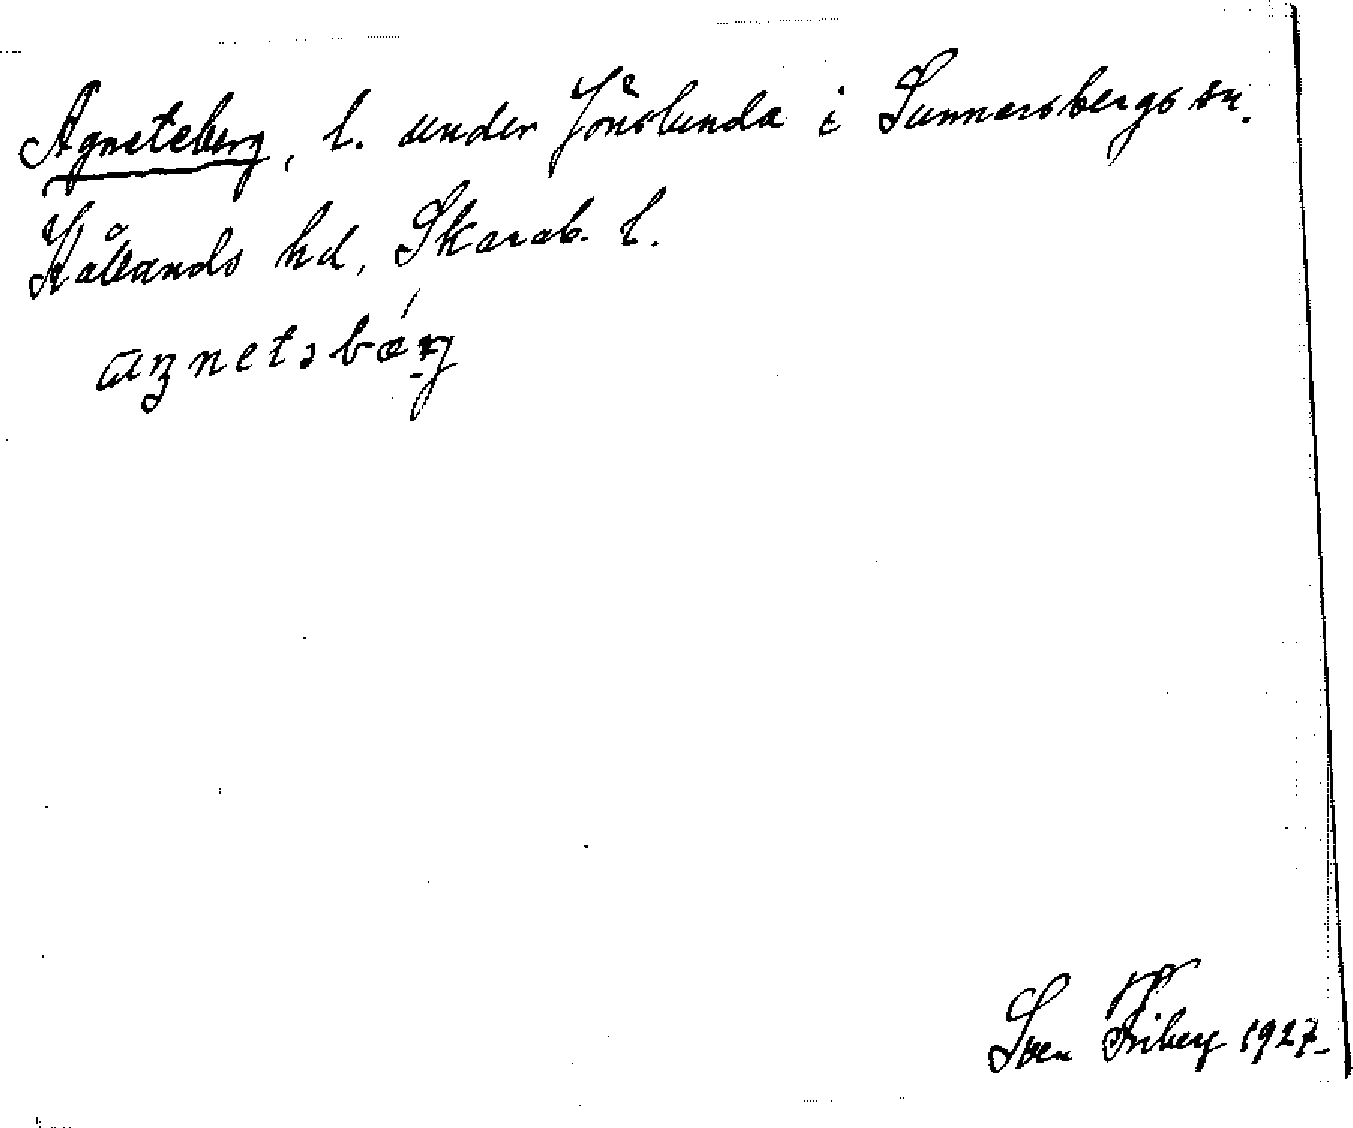 Agneteberg, l. under Jönslunda i Sunnersbergs sn.
Kållands hd, Skarab. l.
agnetsbærg
Sven Friberg 1927